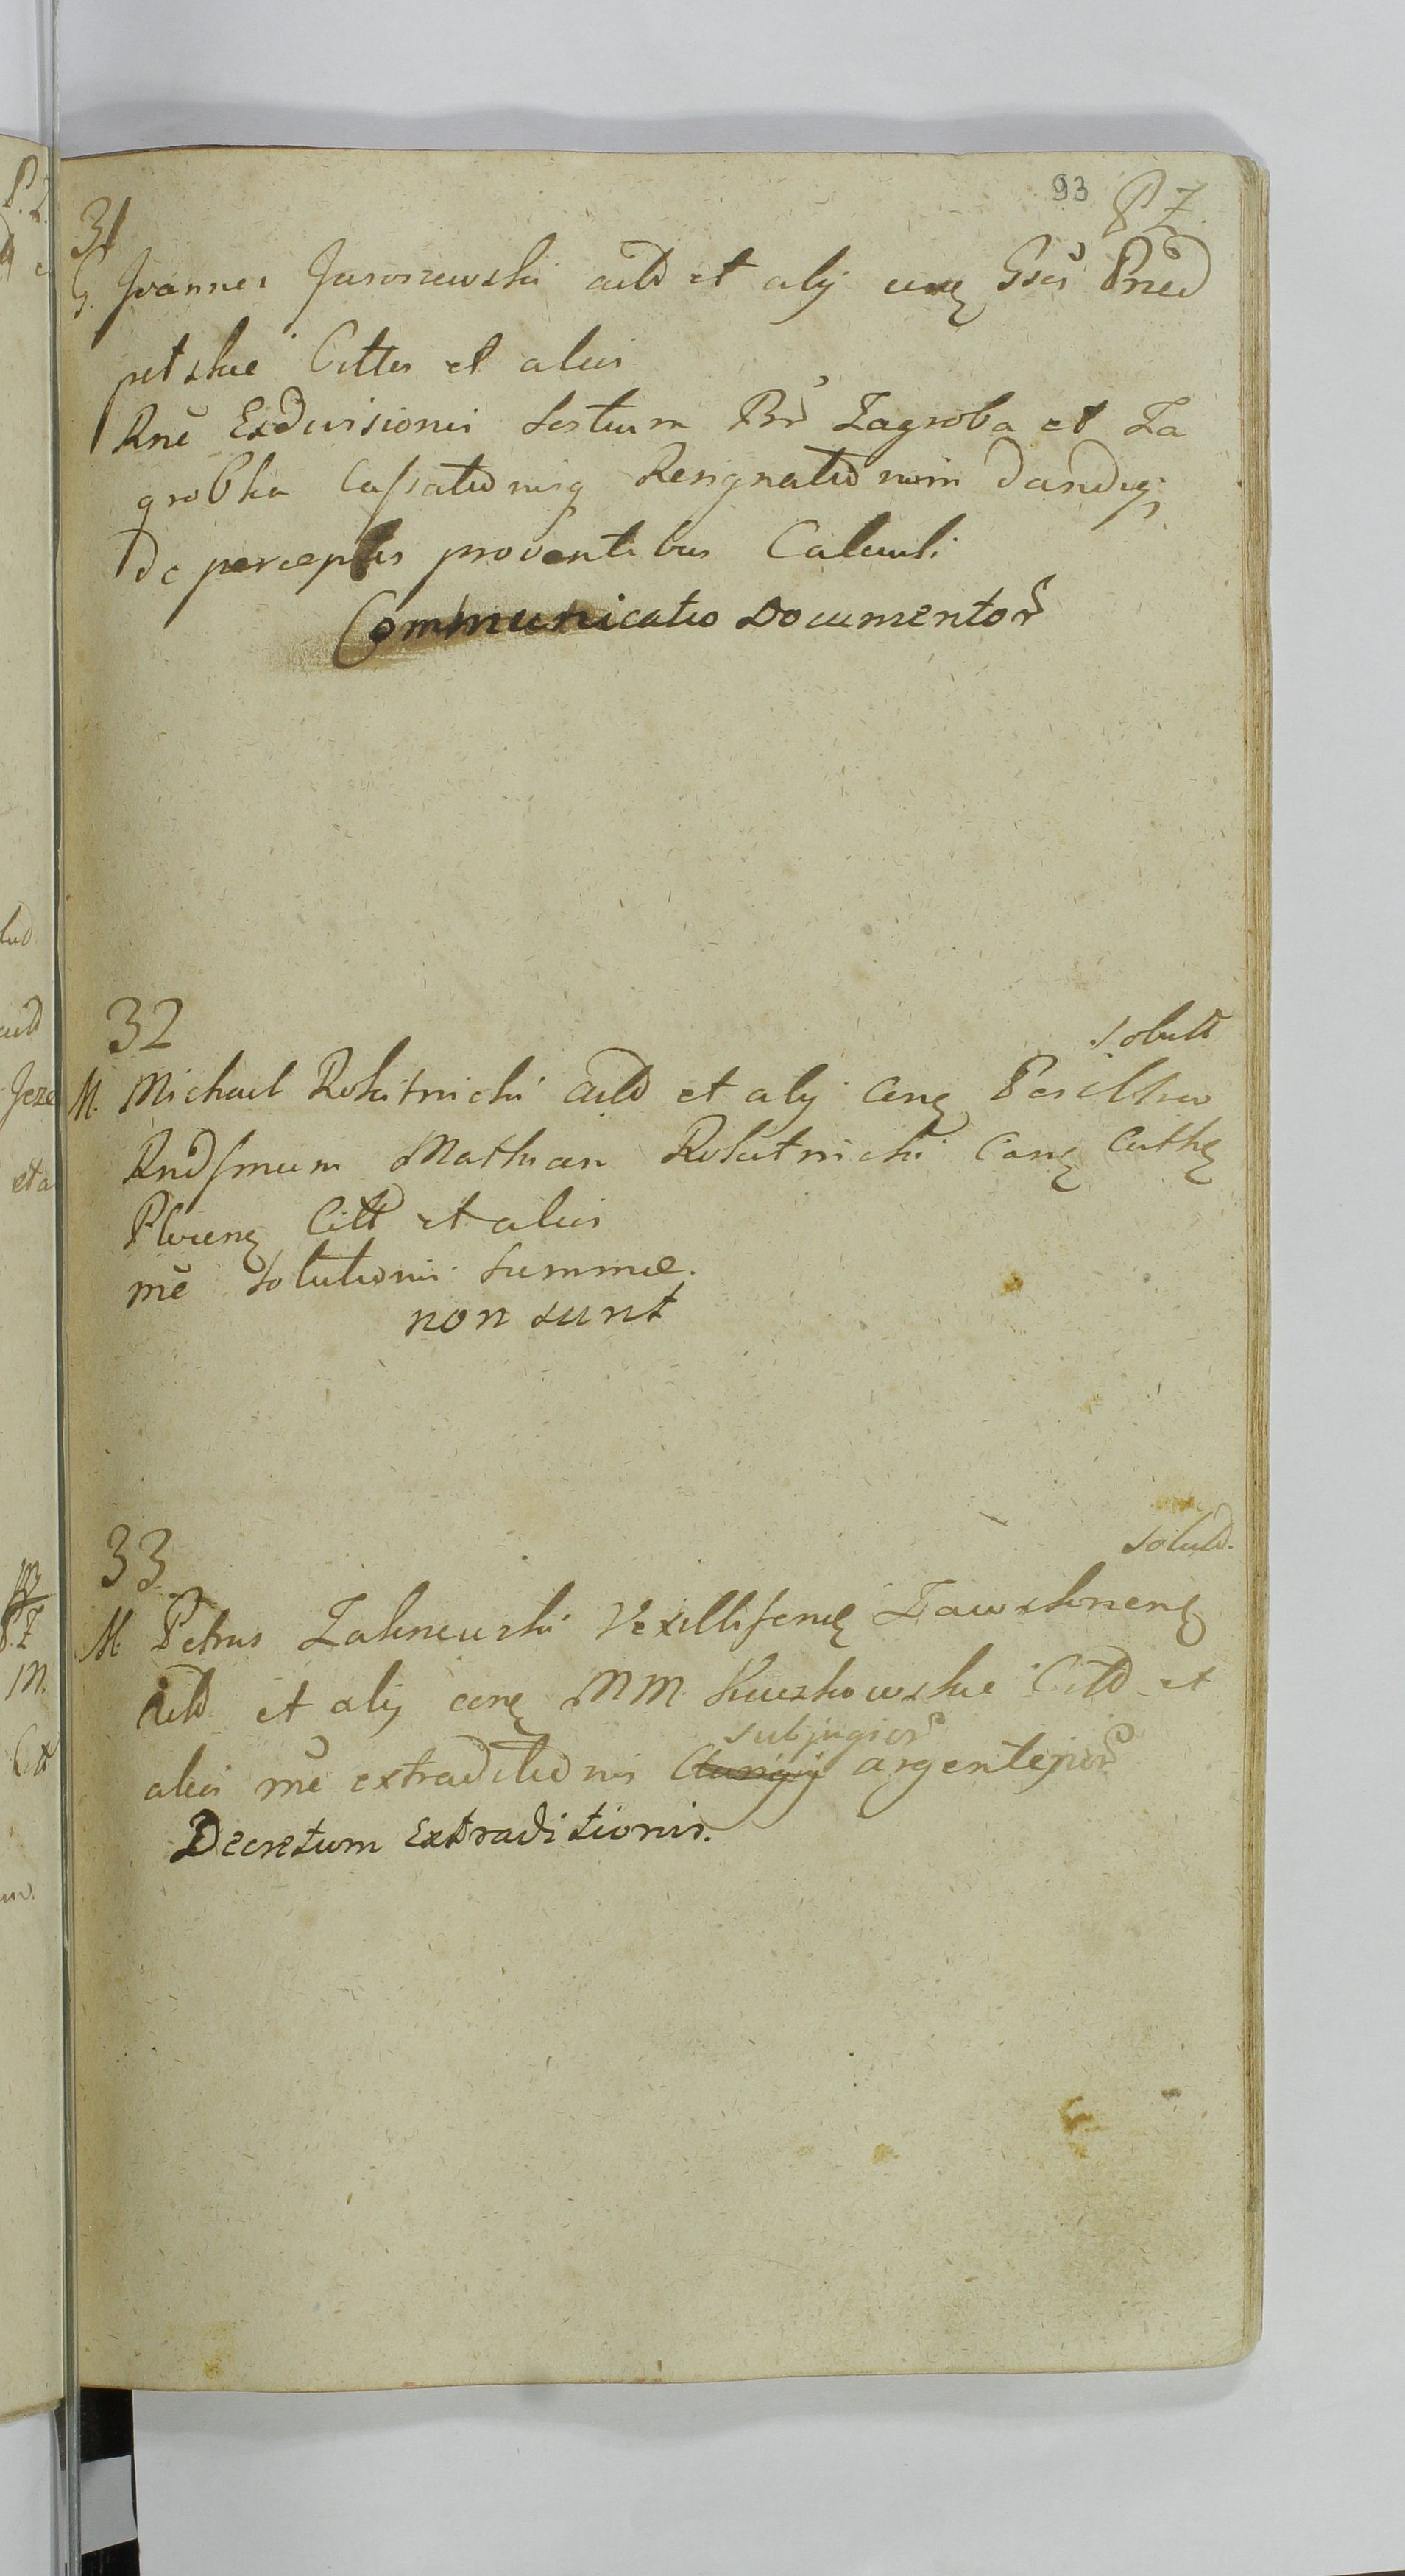 93 P Z.
31
G. Joannes Jaroszewski actd et alij cirq Gsos Przed
petskie Cittos et alios
Rne Exdivisionis Sortium Br Zagroba et Za
grobka Cassationisq Resignationum dandiq;
de perceptis proventibus Calculi
Communicatio Documentor
32
solutt
M. Michael Rokitnicki actd et alij conq Perilltrem
Rndssmum Mathian Rokitnicki Canq Cathq
Plocenq Citt et alios
me Solutionis Summae.
non sunt
33
solutd.
M. Petrus Zakrzewski Vexilliferidq Zawskrzenq
actd et alij conq MM. Kuczkowskie Citd et
subjugior
alios me extraditionis argenteor
Decretum Extraditionis.